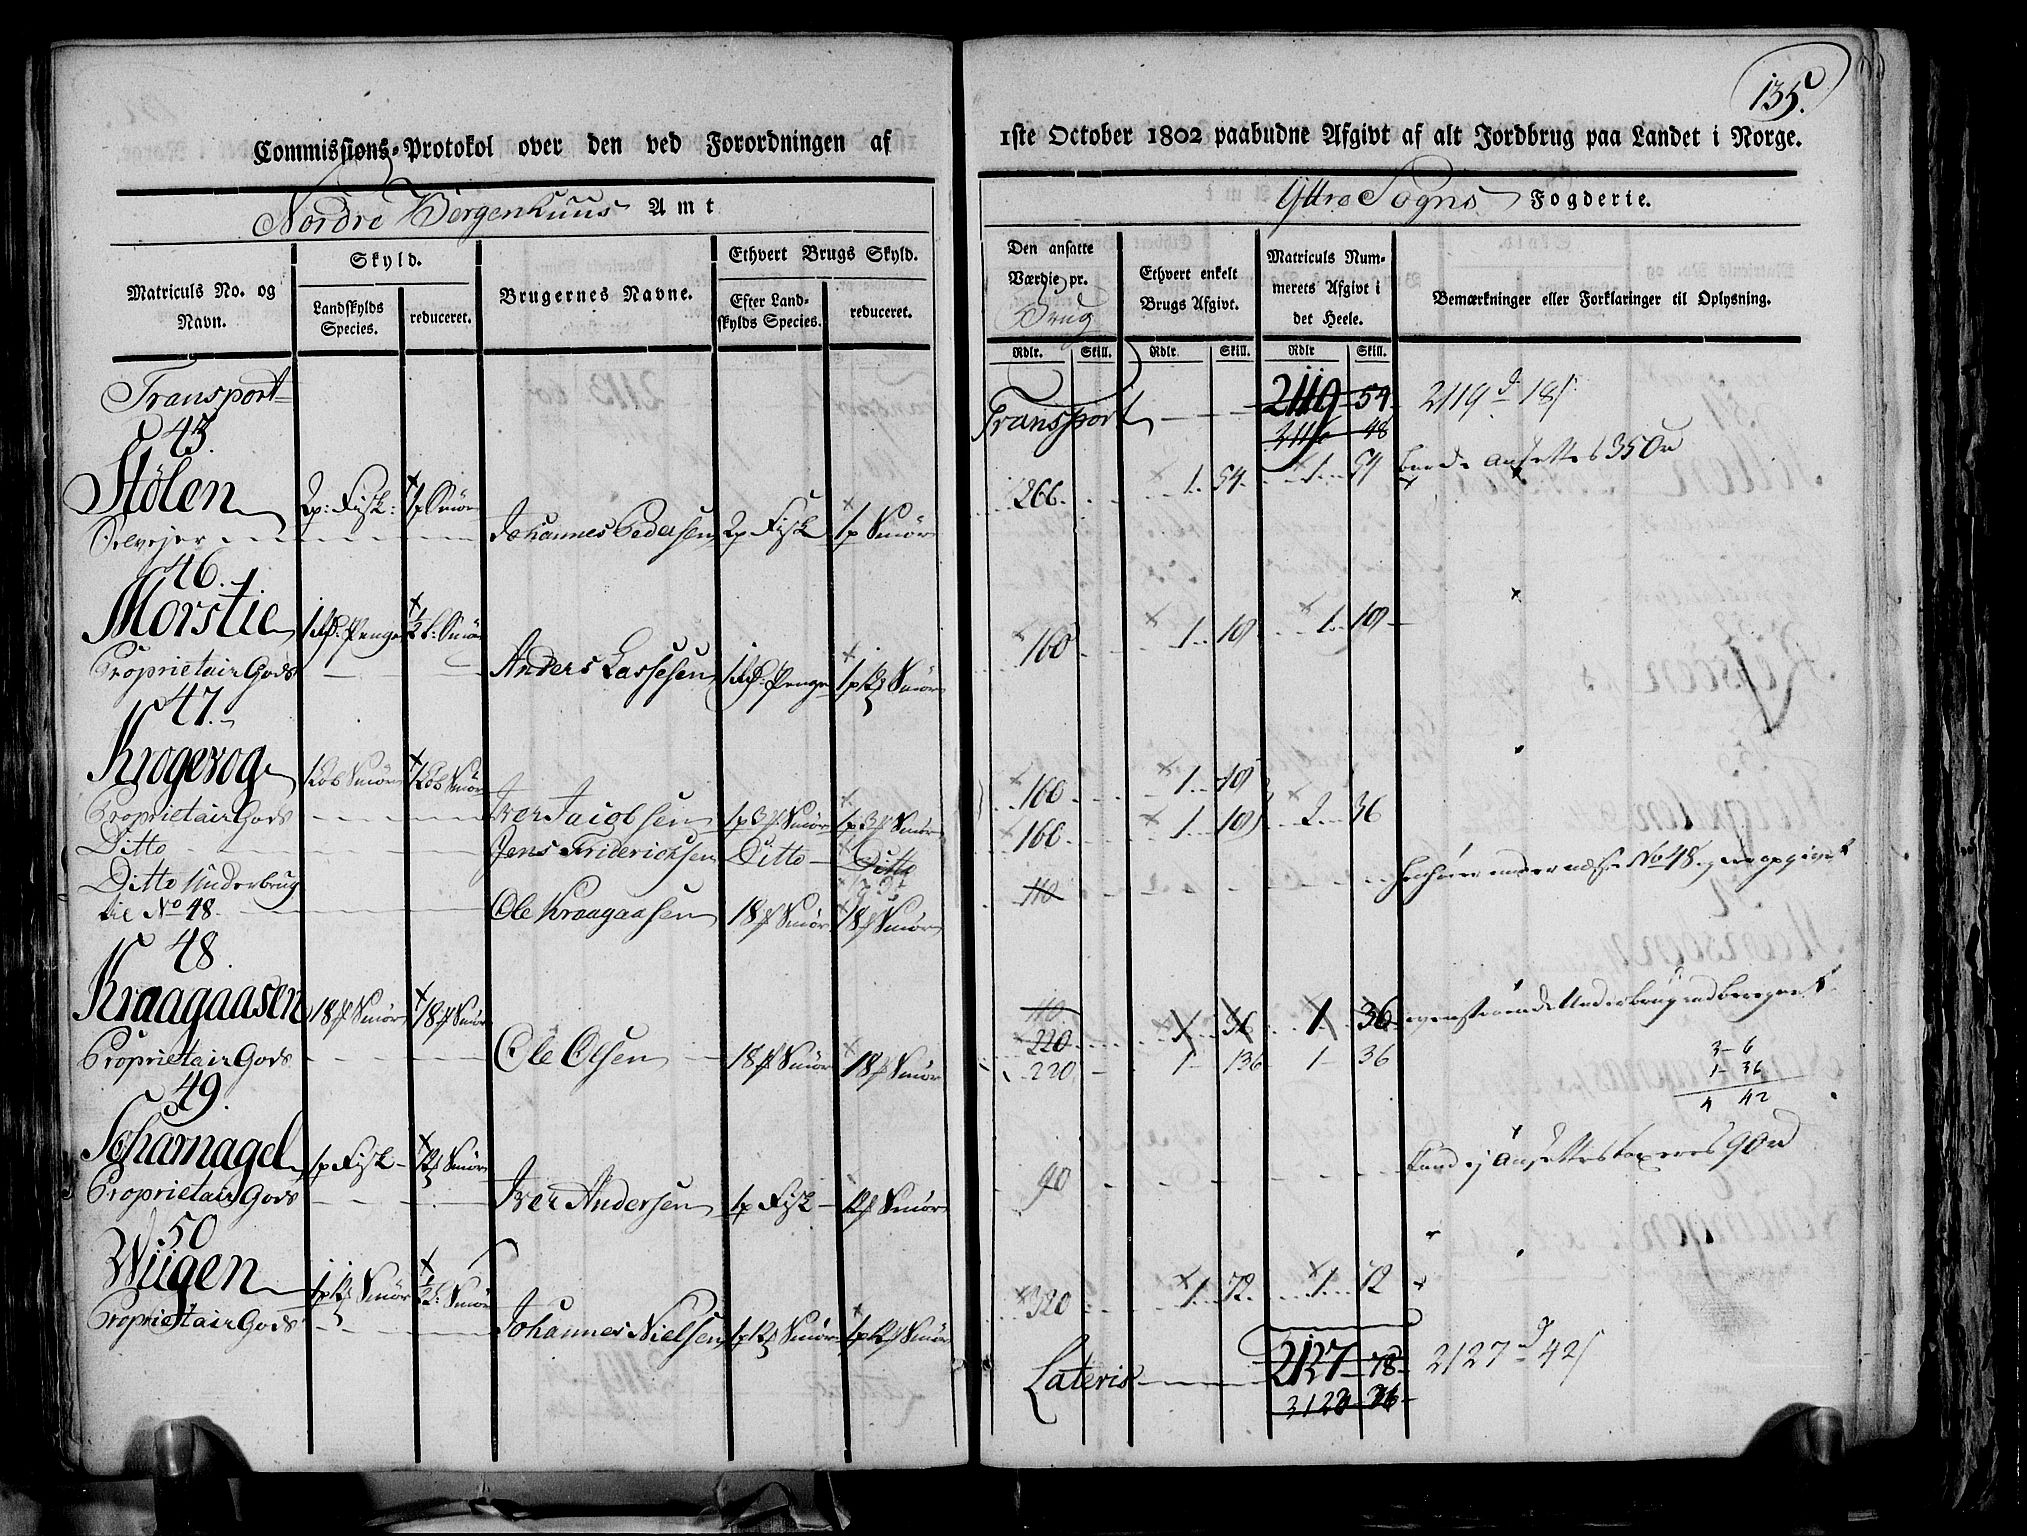 135.
Commissions-Protokol over den ved Forordningen af
1ste October 1802 paabudne Afgivt af alt Jordbrug paa Landet i Norge.
Nordre Bergenhuus Amt
Yttre Sogns Fogderie.
Matriculs No. og Navn.
Skyld.
Landskylds Species.
reduceret.
Brugernes Navne.
Ethvert Brugs Skyld.
Efter Landskylds Species.
reduceret.
Den ansatte Værdie pr. Brug
Ethvert enkelt Brugs Afgivt.
Matriculs Nummerets Afgivt i det Heele.
Bemærkninger eller Forklaringer til Oplysning.
Rdlr. Skill. Rdlr. Skill. Rdlr Skill.
Transport
Transport 2119 54 2119 d 18 s
3116 48
45.
Stølen 2 p: Fisk: 1 p Smør
Selvejer Johannes Pedersen 2 p Fisk 1 p Smør 266 1. 54. 1. 54 ansettes 350
46.
Morstie 1 Rd: Penge ½ l: Smør
Proprietair Gods Anders Lassesen 1 Rd: Penge 1 p R Smør 160 1. 10 1. 10
47.
Krogevog 1 Løb Smør 1 Løb Smør
Proprietair Gods Iver Jacobsen 1 p 3 Smør 1 p 3 Smør 160 1. 10
Ditto Jens Fridericksen Ditto Ditto 160 1. 10 2. 36
Ditto Underbrug
til No 48. Ole Kraagaasen 18 Smør 18 Smør 110 No 48.
48.
Kraagaasen 18 Smør 18 Smør
110
Proprietair Gods Ole Olsen 18 Smør 18 Smør 220 1 36 1. 36 Underbrug
220 1 136 1 36
3 - 6
1 - 36
4 42
49.
Scharnagel 1 p Fisk R Smør
Proprietair Gods Iver Andersen 1 p Fisk R Smør 90 90
50
Wiigen 1 p R Smør ½ l: Smør
Proprietair Gods Johannes Nielsen 1 p R Smør 1 p R Smør 320 1. 72 1. 72
Lateris 2127 78 2127 d 42 s